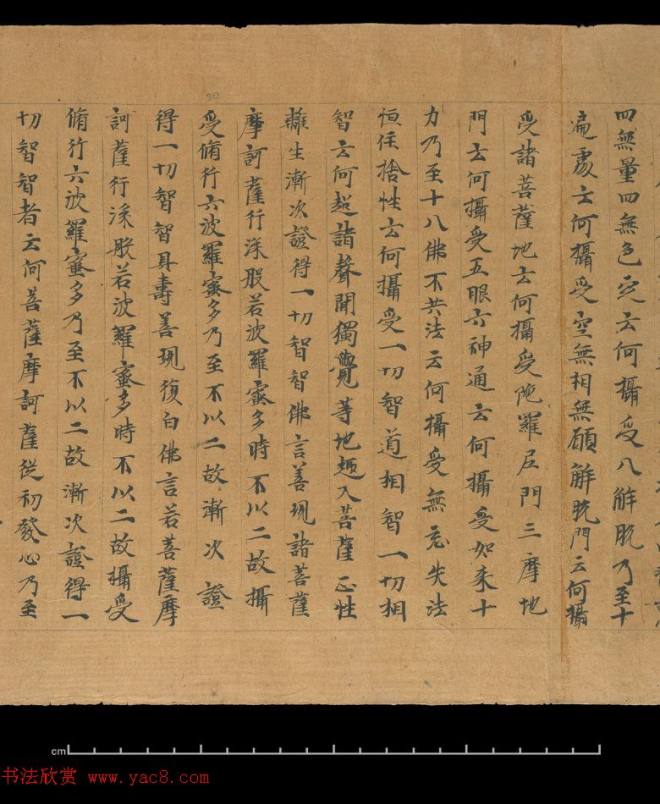 四無量四無色定云何攝受八解脫乃至十
遍處云何攝受空無相無願解脫門云何攝
受諸菩薩地云何攝受陀羅尼門三摩地
門云何攝受五眼六神通云何攝受如来十
力乃至十八佛不共法云何攝受無忘失法
恒住捨性云何攝受一切智道相智一切相
智云何超諸聲聞獨覺等地趣入菩薩正性
離生漸次證得一切智智佛言善現諸菩薩
摩訶薩行深般若波羅蜜多時不以二故攝
受脩行六波羅蜜多乃至不以二故漸次證
得一切智智具壽善現復白佛言若菩薩摩
訶薩行深般若波羅蜜多時不以二故攝受
脩行六波羅蜜多乃至不以二故漸次證得一
切智智者云何菩薩摩訶薩從初發心乃至
cm
书法欣赏 www.yac8.com